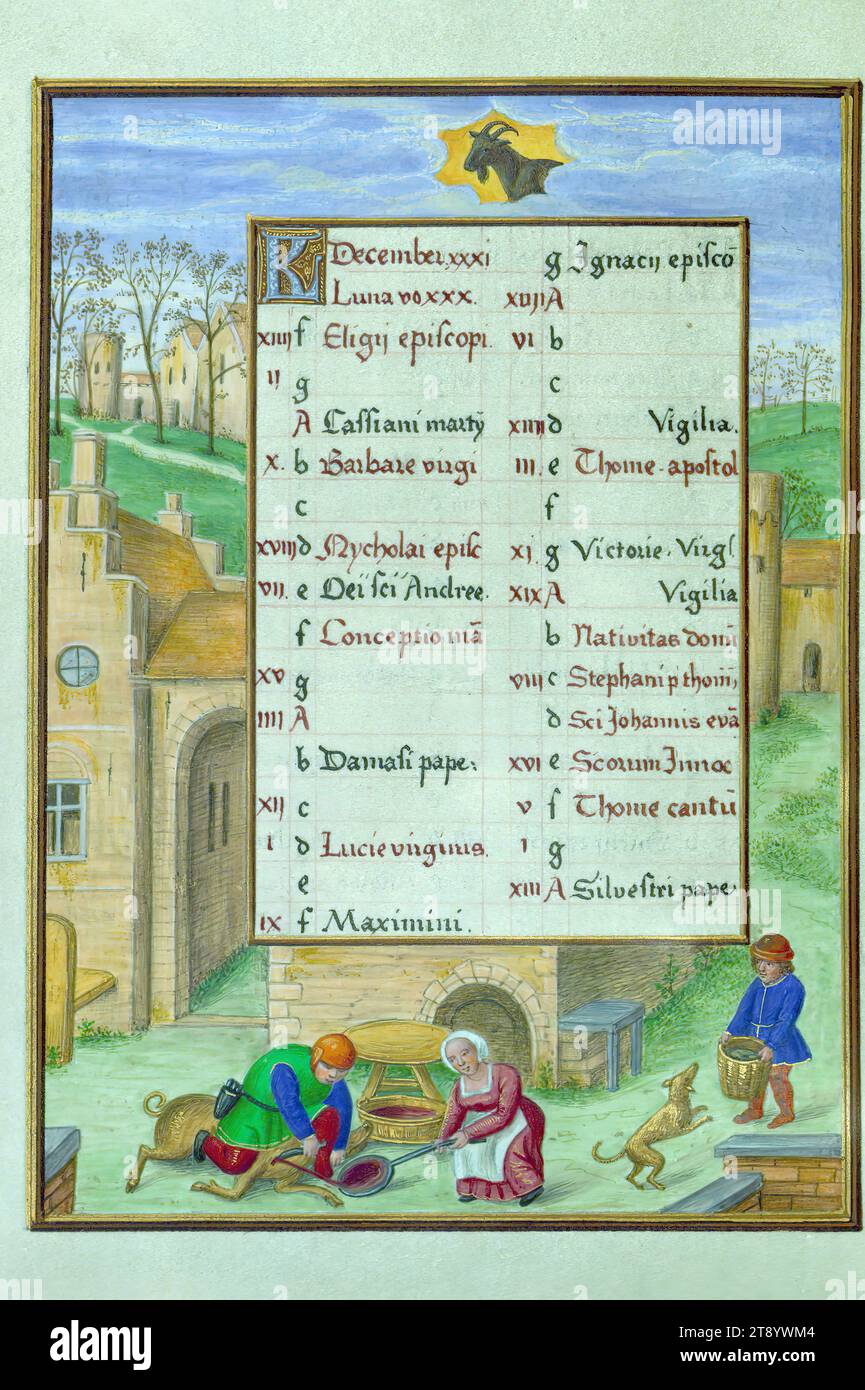 KL December xxxi
Luna vo xxx.
xiiii f Eligii episcopi.
ii g
A Cassiani marty
x. b Barbare virgi
c
xviii d Nycholai episc
vii. e Dei sci Andree.
f Conceptio mā
xv g
iiii A
b Damasi pape.
xii c
i d Lucie virginis.
e
ix f Maximini.
g Ignacii episcō
xvii A
vi b
c
xiiii d Vigilia.
iii. e Thome apostol
f
xi. g Victorie. Virg
xix A Vigilia
b Nativitas domī
viii c Stephani p thom,
d Sci Johannis evā
xvi e Scorum Innoc
v f Thome cantū
i g
xiii A Silvestri pape.
alamy
Image ID: 2T8YWM4
www.alamy.com